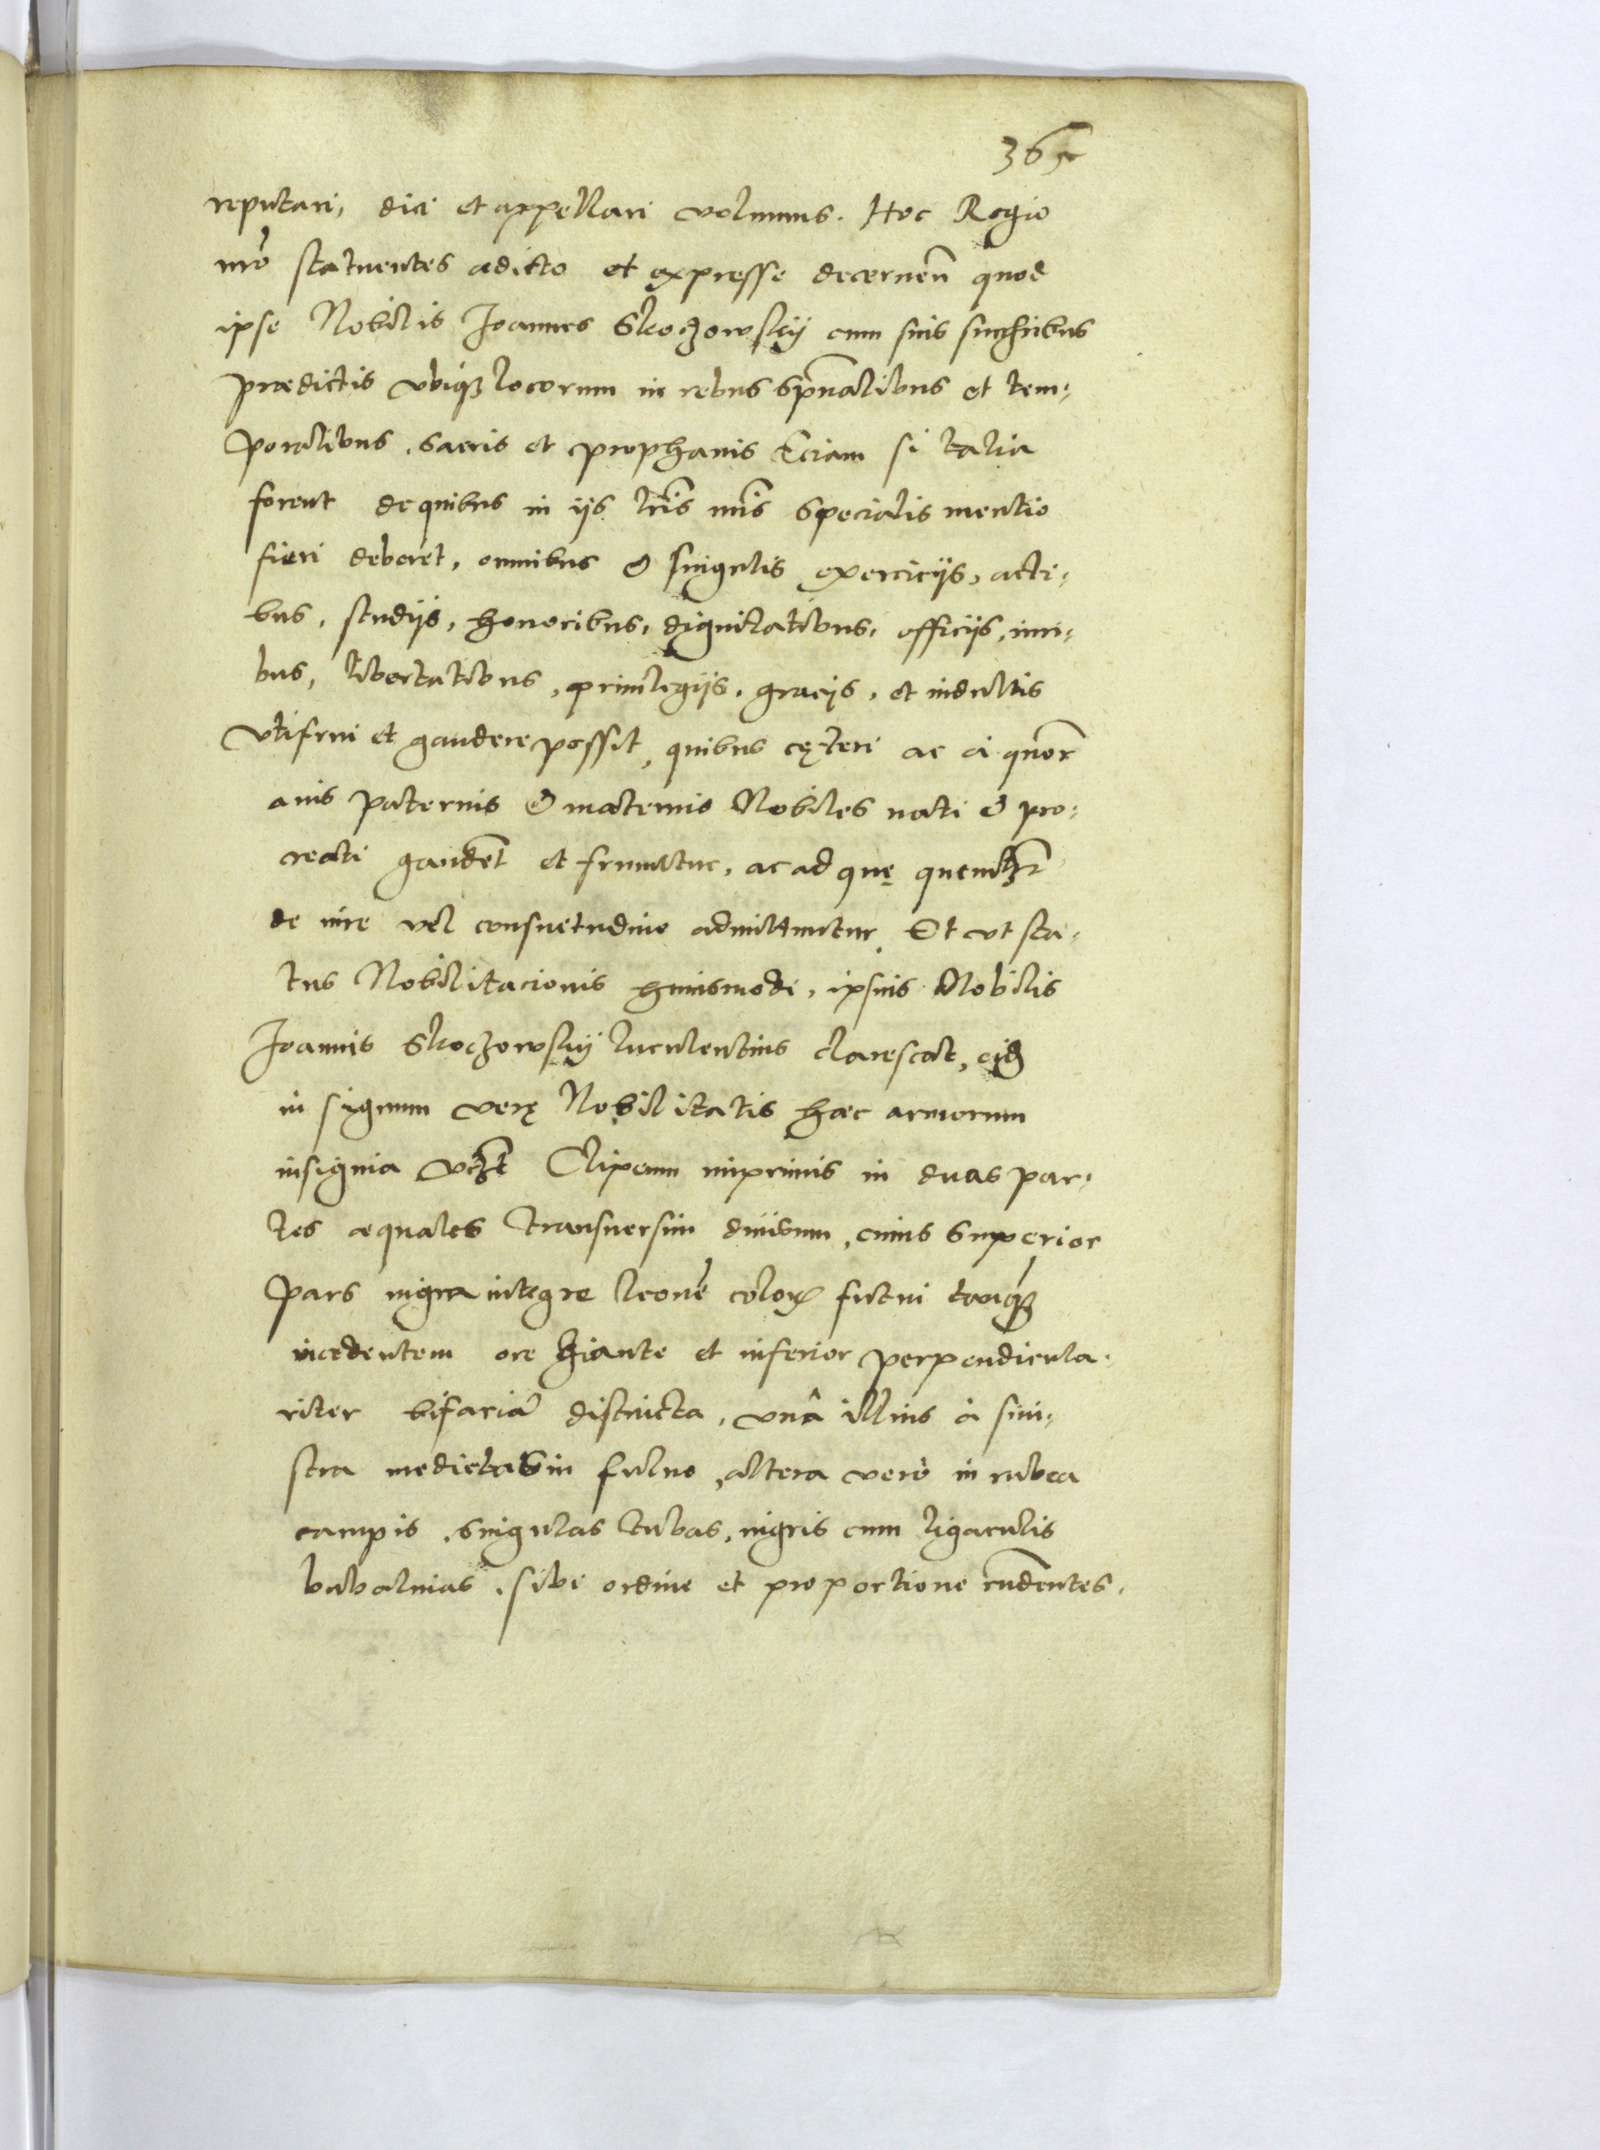 365
reputari, dici et appellari volumus. Hoc Regio
nrō statuentes ædicto et expresse decernen̄ quod
ipse Nobilis Joannes Skoczowskij cum suis
prædictis vbiqꝫ locorum in rebus sp̄ualibus et tem-
poralibus, sacris et prophanis Eciam si talia
forent de quibus in ijs lr̄is nr̄is specialis mentio
fieri deberet, omnibus & singulis exercicijs, acti-
bus, studijs, honoribus, dignitatibus, officijs, iuri-
bus, libertatibus, priuilegijs, gracijs, et indultis
vtifrui et gaudere possit, quibus cęteri ac à quatuor
auis paternis & maternis Nobiles nati & pro-
creati gaudēt et fruuntur, ac ad quę
de iure vel consuetudine admittuntur. Et vt sta-
tus Nobilitacionis huiusmodi, ipsius Nobilis
Joannis Skoczowskij luculentius clarescat, eidē
in signum verę Nobilitatis hæc armorum
insignia vczt Clipeum inprimis in duas par-
tes æquales transuersim diuisum, cuius superior
pars nigra integre leonē colorꝫ fului
incedentem ore hiante et inferior perpendicula-
riter bifariā distincta, vnâ illius à sini-
stra medietas in fuluo, altera verò in rubea
campis, singulas tubas, nigris cum ligaculis
bubalinas, sibi ordine et proportione rn̄dentes.